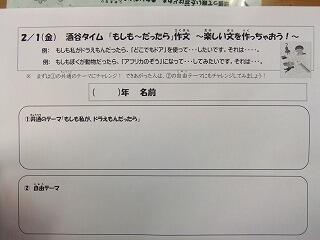 2/1(金) 酒谷タイム 「もしも~だったら」作文 ~楽しい文を作っちゃおう!~
例: もしも私がドラえもんだったら、「どこでもドア」を使って・・・したいです。それは・・・。
例: もしもぼくが動物だったら、「アフリカのぞう」になって・・・してみたいです。それは・・・。
※ まずは①の共通のテーマにチャレンジ! できあがった人は、②の自由テーマにもチャレンジしてみましょう!
( )年 名前
①共通のテーマ「もしも私が、ドラえもんだったら」
② 自由テーマ